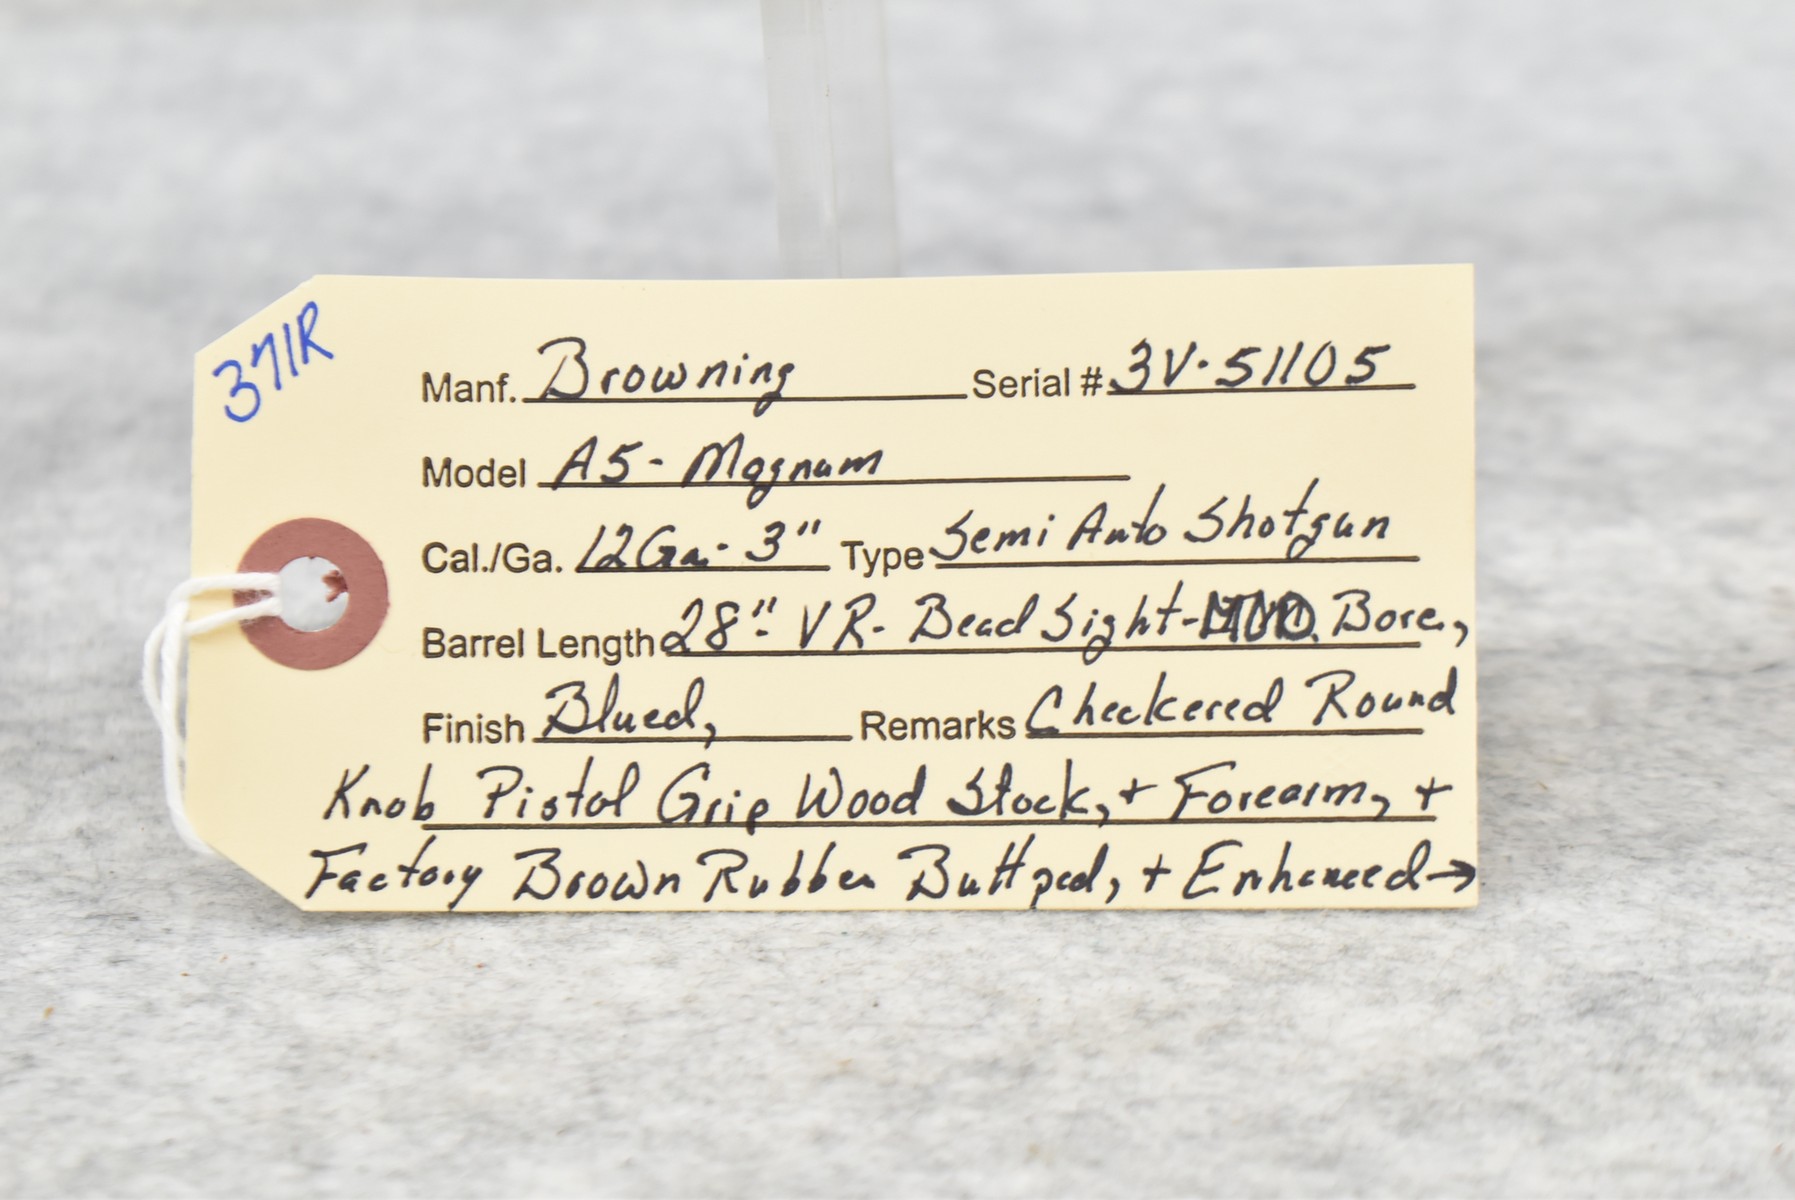 371R
Manf. Browning Serial # 3V·51105
Model A5- Magnum
Cal./Ga. 12Ga- 3" Type Semi Auto Shotgun
Barrel Length 28"- VR- Bead Sight- MOD. Bore,
Finish Blued, Remarks Checkered Round
Knob Pistol Grip Wood Stock, + Forearm, +
Factory Brown Rubber Buttpad, + Enhanced→